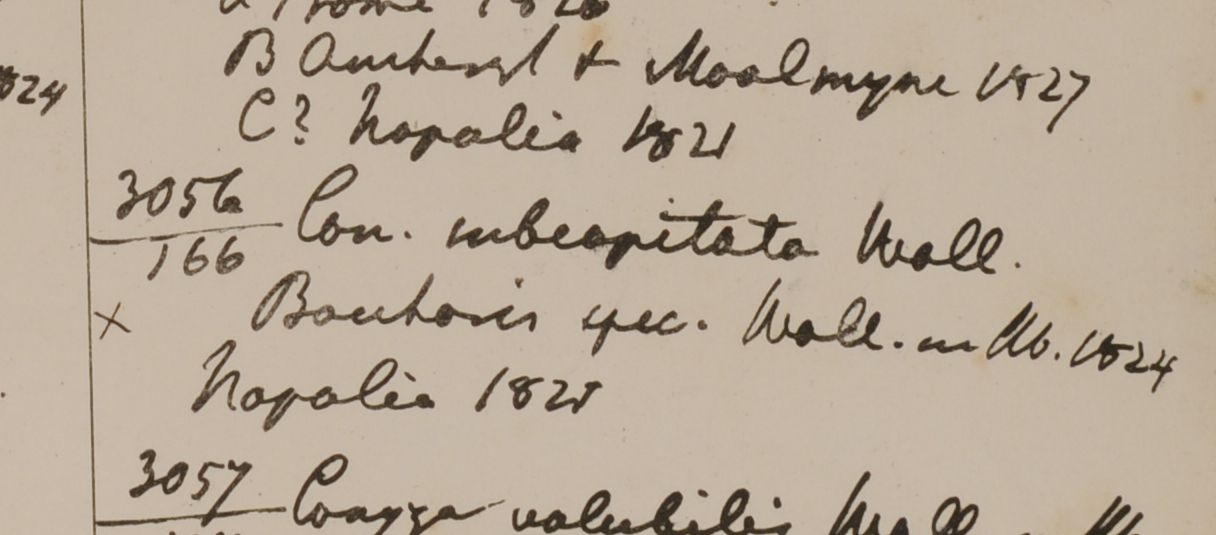 a Prome 1826
B Amherst & Moalmyne 1827
824
C? Napalia 1821
3056 Con. subcapitata Wall.
166
x Baccharis spec. Wall. in Hb. 1824
Napalia 1821
3057 Conyza volubilis Wall